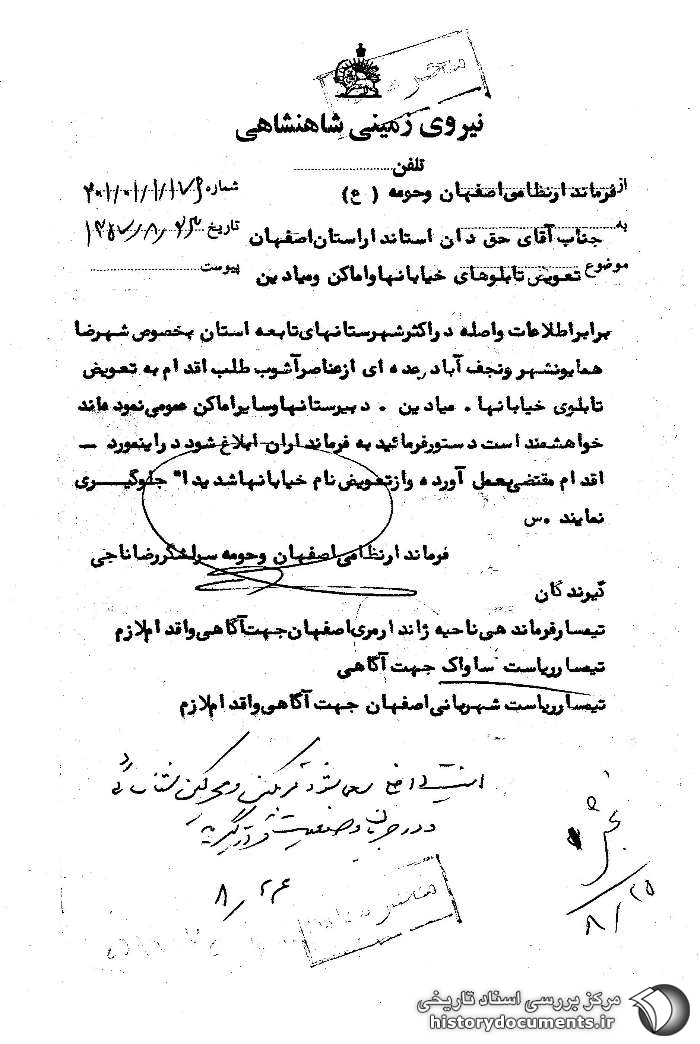 محرمانه
نیروی زمینی شاهنشاهی
تلفن
از فرماندارنظامی اصفهان وحومه ( ع ) شماره
به جناب آقای حق دان استانداراستان اصفهان تاریخ ۱۳۵۷/۸/۲۳
موضوع تعویض تابلوهای خیابانها واماکن ومیادین پیوست
برابراطلاعات واصله دراکثرشهرستانهای تابعه استان بخصوص شهرضا
همایونشهر ونجف آباد عده ای ازعناصرآشوب طلب اقدام به تعویض
تابلوی خیابانها . میادین . دبیرستانها وسایراماکن عمومی نموده اند
خواهشمند است دستورفرمائید به فرمانداران ابلاغ شود دراینمورد ـ
اقدام مقتضی بعمل آورده وازتعویض نام خیابانها شدیدا" جلوگیری
نمایند .س
فرماندارنظامی اصفهان وحومه سرلشگررضا ناجی
گیرندگان
تیمسارفرماندهی ناحیه ژاندارمری اصفهان جهت آگاهی واقدام لازم
تیمسارریاست ساواک جهت آگاهی
تیمسارریاست شهربانی اصفهان جهت آگاهی واقدام لازم
ودر جریان وضعیت قرار گیرند
۸/۲۴
۸/۲۵
محرمانه
مرکز بررسی اسناد تاریخی
historydocuments.ir